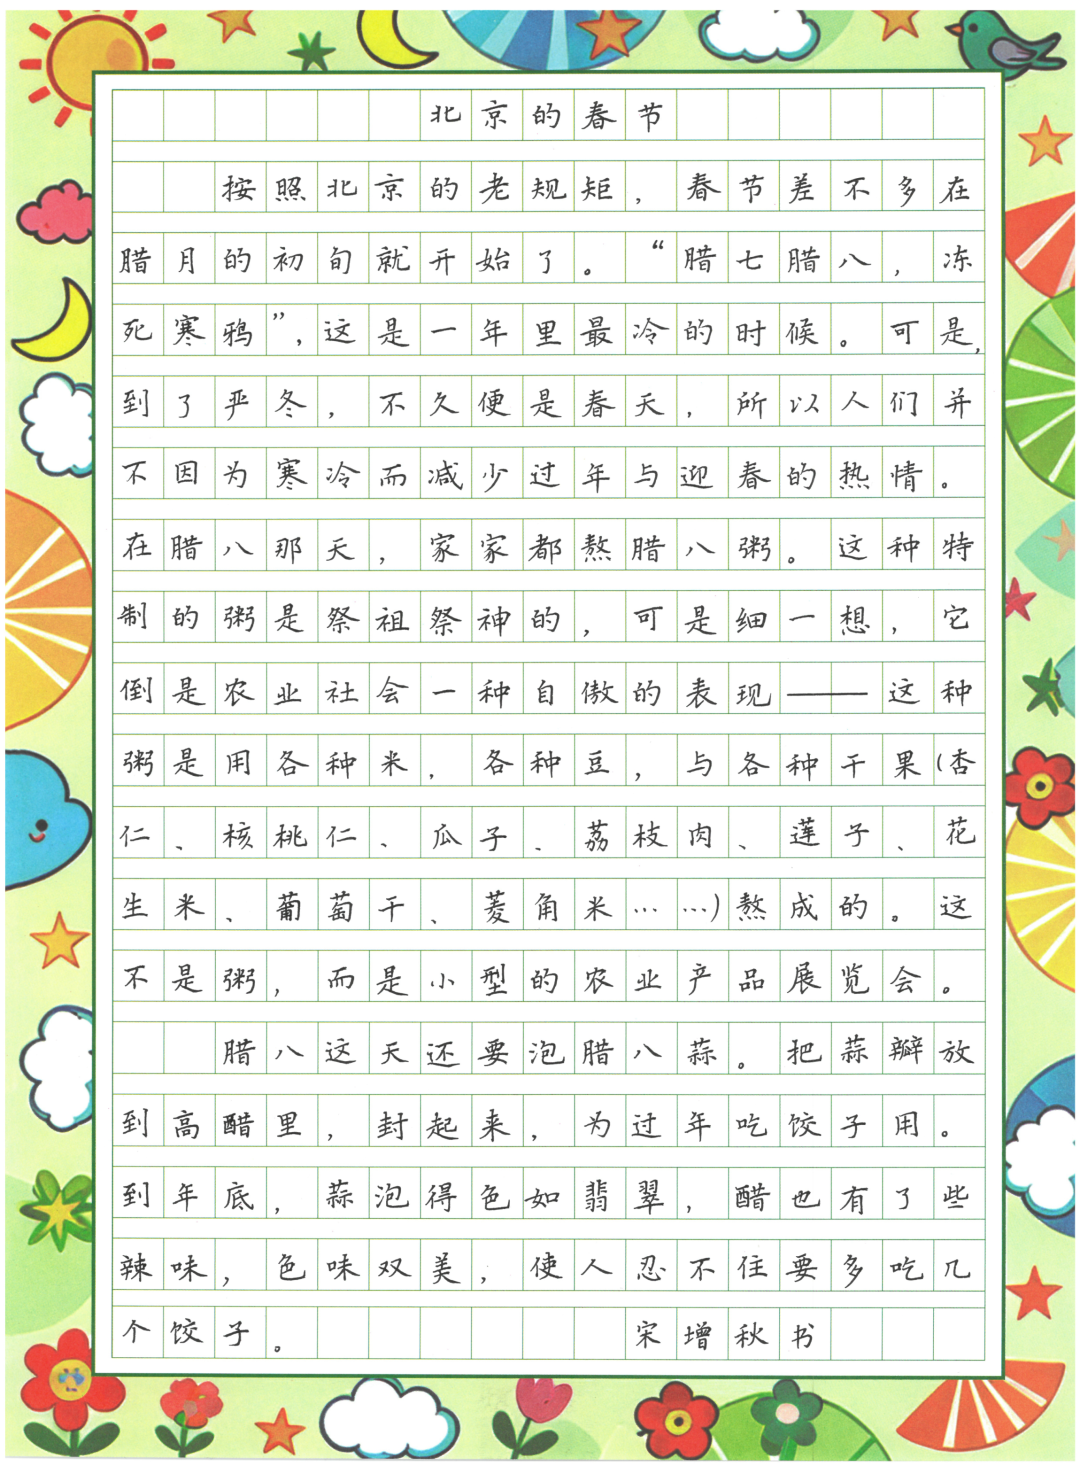 北京的春节
按照北京的老规矩，春节差不多在
腊月的初旬就开始了。“腊七腊八，冻
死寒鸦”，这是一年里最冷的时候。可是，
到了严冬，不久便是春天，所以人们并
不因为寒冷而减少过年与迎春的热情。
在腊八那天，家家都熬腊八粥。这种特
制的粥是祭祖祭神的，可是细一想，它
倒是农业社会一种自傲的表现——这种
粥是用各种米，各种豆，与各种干果（杏
仁、核桃仁、瓜子、荔枝肉、莲子、花
生米、葡萄干、菱角米……）熬成的。这
不是粥，而是小型的农业产品展览会。
腊八这天还要泡腊八蒜。把蒜瓣放
到高醋里，封起来，为过年吃饺子用。
到年底，蒜泡得色如翡翠，醋也有了些
辣味，色味双美，使人忍不住要多吃几
个饺子。 宋增秋书